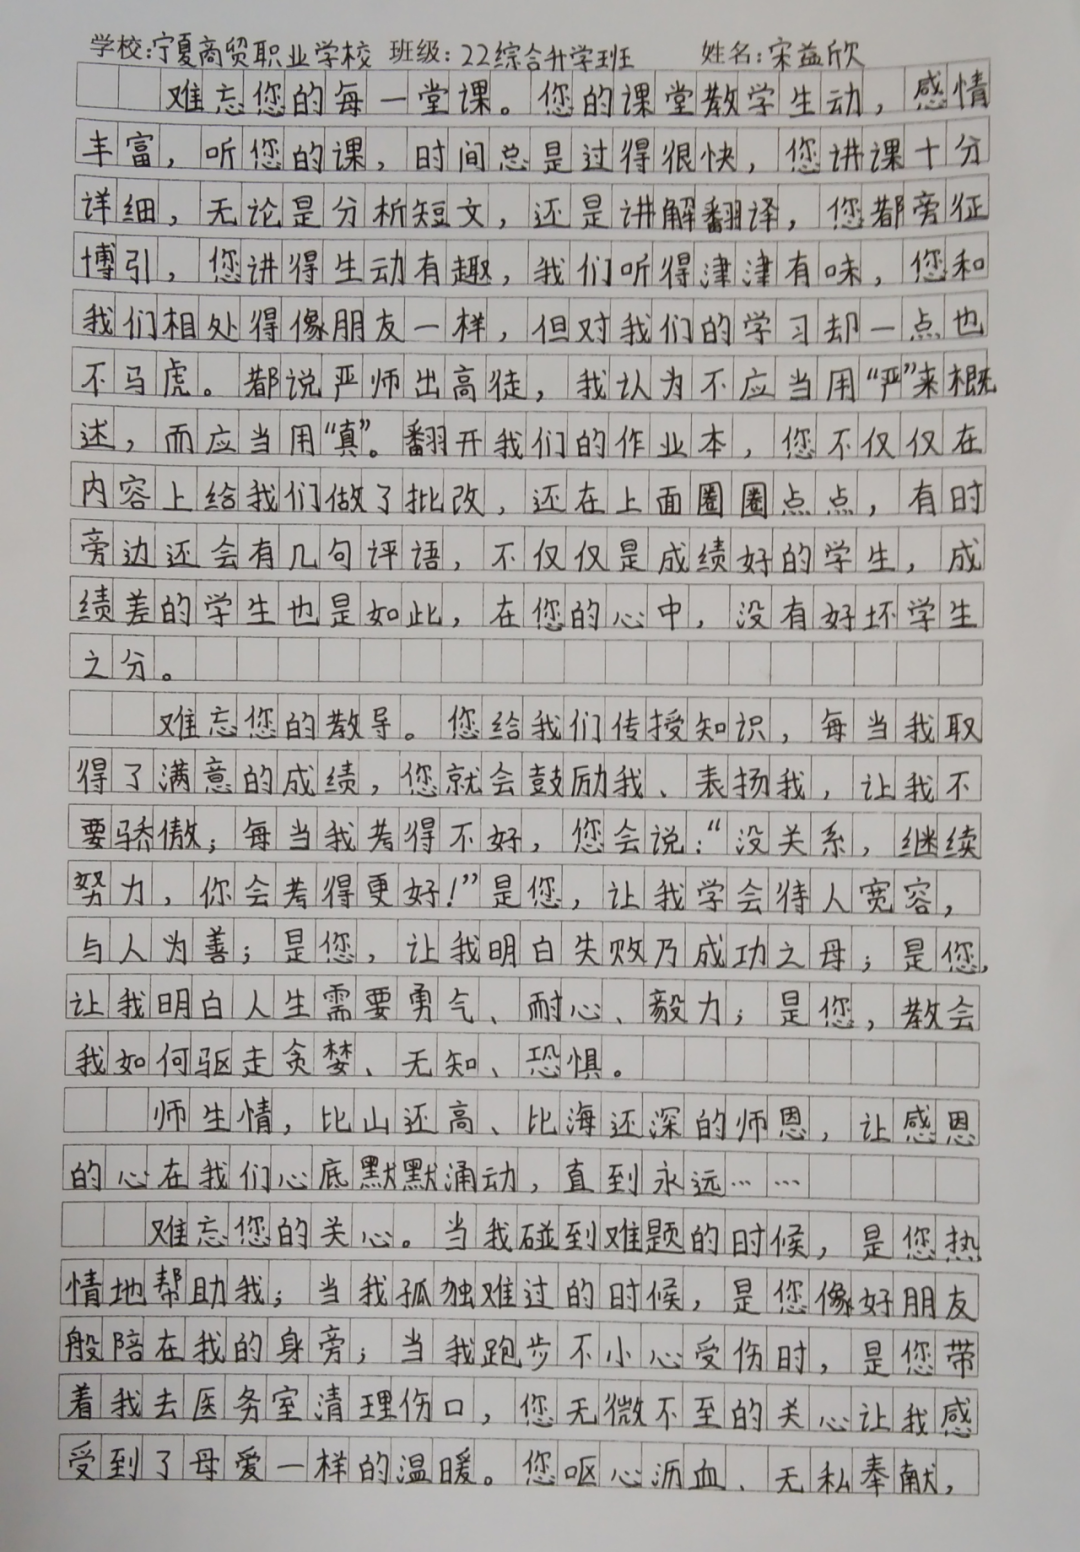 学校:宁夏商贸职业学校 班级:22综合升学班 姓名:宋益欣
难忘您的每一堂课。您的课堂教学生动，感情
丰富，听您的课，时间总是过得很快，您讲课十分
详细，无论是分析短文，还是讲解翻译，您都旁征
博引，您讲得生动有趣，我们听得津津有味，您和
我们相处得像朋友一样，但对我们的学习却一点也
不马虎。都说严师出高徒，我认为不应当用“严”来概
述，而应当用“真”。翻开我们的作业本，您不仅仅在
内容上给我们做了批改，还在上面圈圈点点，有时
旁边还会有几句评语，不仅仅是成绩好的学生，成
绩差的学生也是如此，在您的心中，没有好坏学生
之分。
难忘您的教导。您给我们传授知识，每当我取
得了满意的成绩，您就会鼓励我、表扬我，让我不
要骄傲；每当我考得不好，您会说：“没关系，继续
努力，你会考得更好！”是您，让我学会待人宽容，
与人为善；是您，让我明白失败乃成功之母；是您，
让我明白人生需要勇气、耐心、毅力；是您，教会
我如何驱走贪婪、无知、恐惧。
师生情，比山还高、比海还深的师恩，让感恩
的心在我们心底默默涌动，直到永远……
难忘您的关心。当我碰到难题的时候，是您热
情地帮助我；当我孤独难过的时候，是您像好朋友
般陪在我的身旁；当我跑步不小心受伤时，是您带
着我去医务室清理伤口，您无微不至的关心让我感
受到了母爱一样的温暖。您呕心沥血、无私奉献，